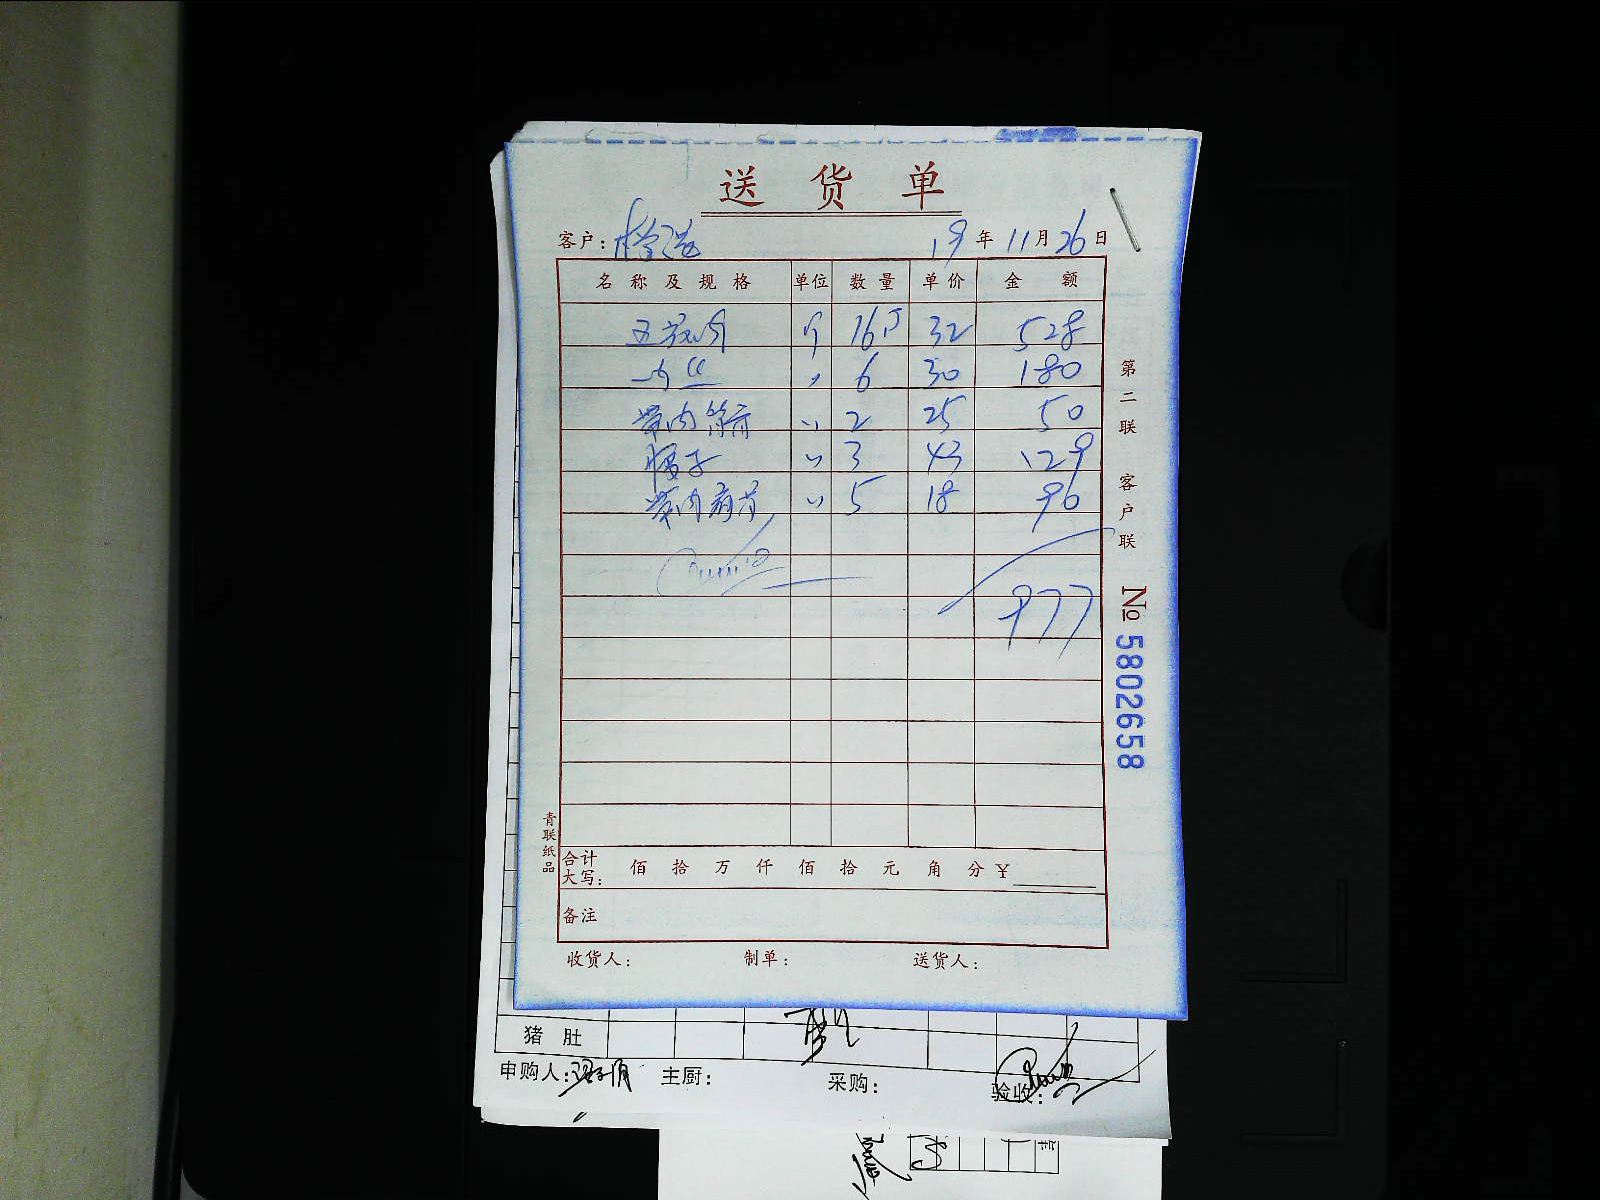 送货单
客户： 19年11月26日
名称及规格 单位 数量 单价 金额
五花肉 斤 16.5 32 528
肉丝 〃 6 30 180
带肉筒 〃 2 25 50
腰子 〃 3 43 129
带肉 〃 5 18 90
977
合计大写： 佰 拾 万 仟 佰 拾 元 角 分 ¥
备注
收货人： 制单： 送货人：
第二联 客户联
№ 5802658
青联纸品
猪肚
申购人： 主厨： 采购： 验收：